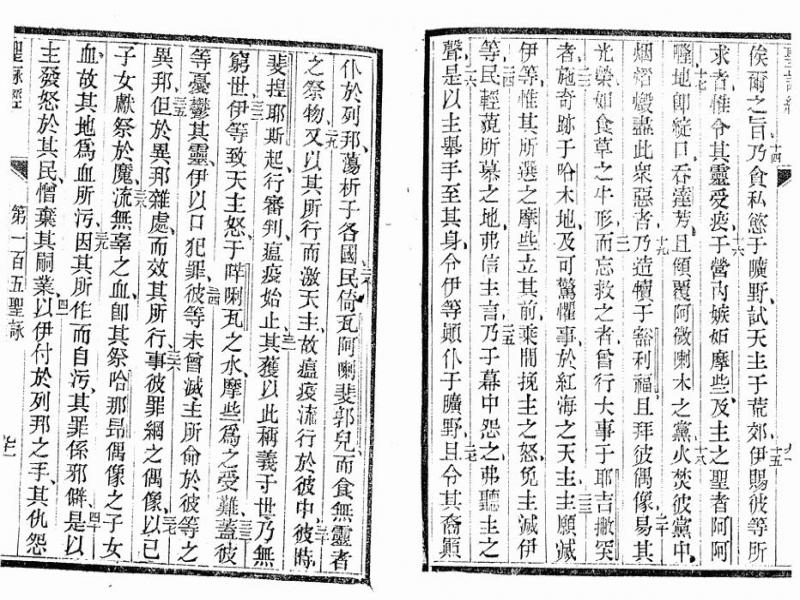 俟爾之旨乃貪私慾于曠野試天主于荒郊伊賜彼等所
求者惟令其靈受疫于營內嫉妬摩些及主之聖者阿阿
隆地卽綻口吞達芳且傾覆阿微喇木之黨火焚彼黨中
烟熠燬盡此衆惡者乃造犢于豁利福且拜彼偶像易其
光榮如食草之牛形而忘救之者曾行大事于耶吉撇突
者施奇跡于哈木地及可驚懼事於紅海之天主主願滅
伊等惟其所選之摩些立其前乘間挽主之怒免主滅伊
等民輕藐所慕之地弗信主言乃于幕中怨之弗聽主之
聲是以主舉手至其身令伊等顚仆于曠野且令其裔顚
仆於列邦蕩析于各國民倚瓦阿喇斐郭兒而食無靈者
之祭物又以其所行而激天主故瘟疫流行於彼中彼時
斐揑耶斯起行審判瘟疫始止其獲以此稱義于世乃無
窮世伊等致天主怒于哶唎瓦之水摩些爲之受難蓋彼
等憂鬱其靈伊以口犯罪彼等未曾滅主所命於彼等之
異邦但於異邦雜處而效其所行事彼罪網之偶像以己
子女獻祭於魔流無辜之血卽其祭哈那昂偶像之子女
血故其地爲血所污因其所作而自污其罪係邪僻是以
主發怒於其民憎棄其嗣業以伊付於列邦之手其仇怨
聖詠經
第一百五聖詠